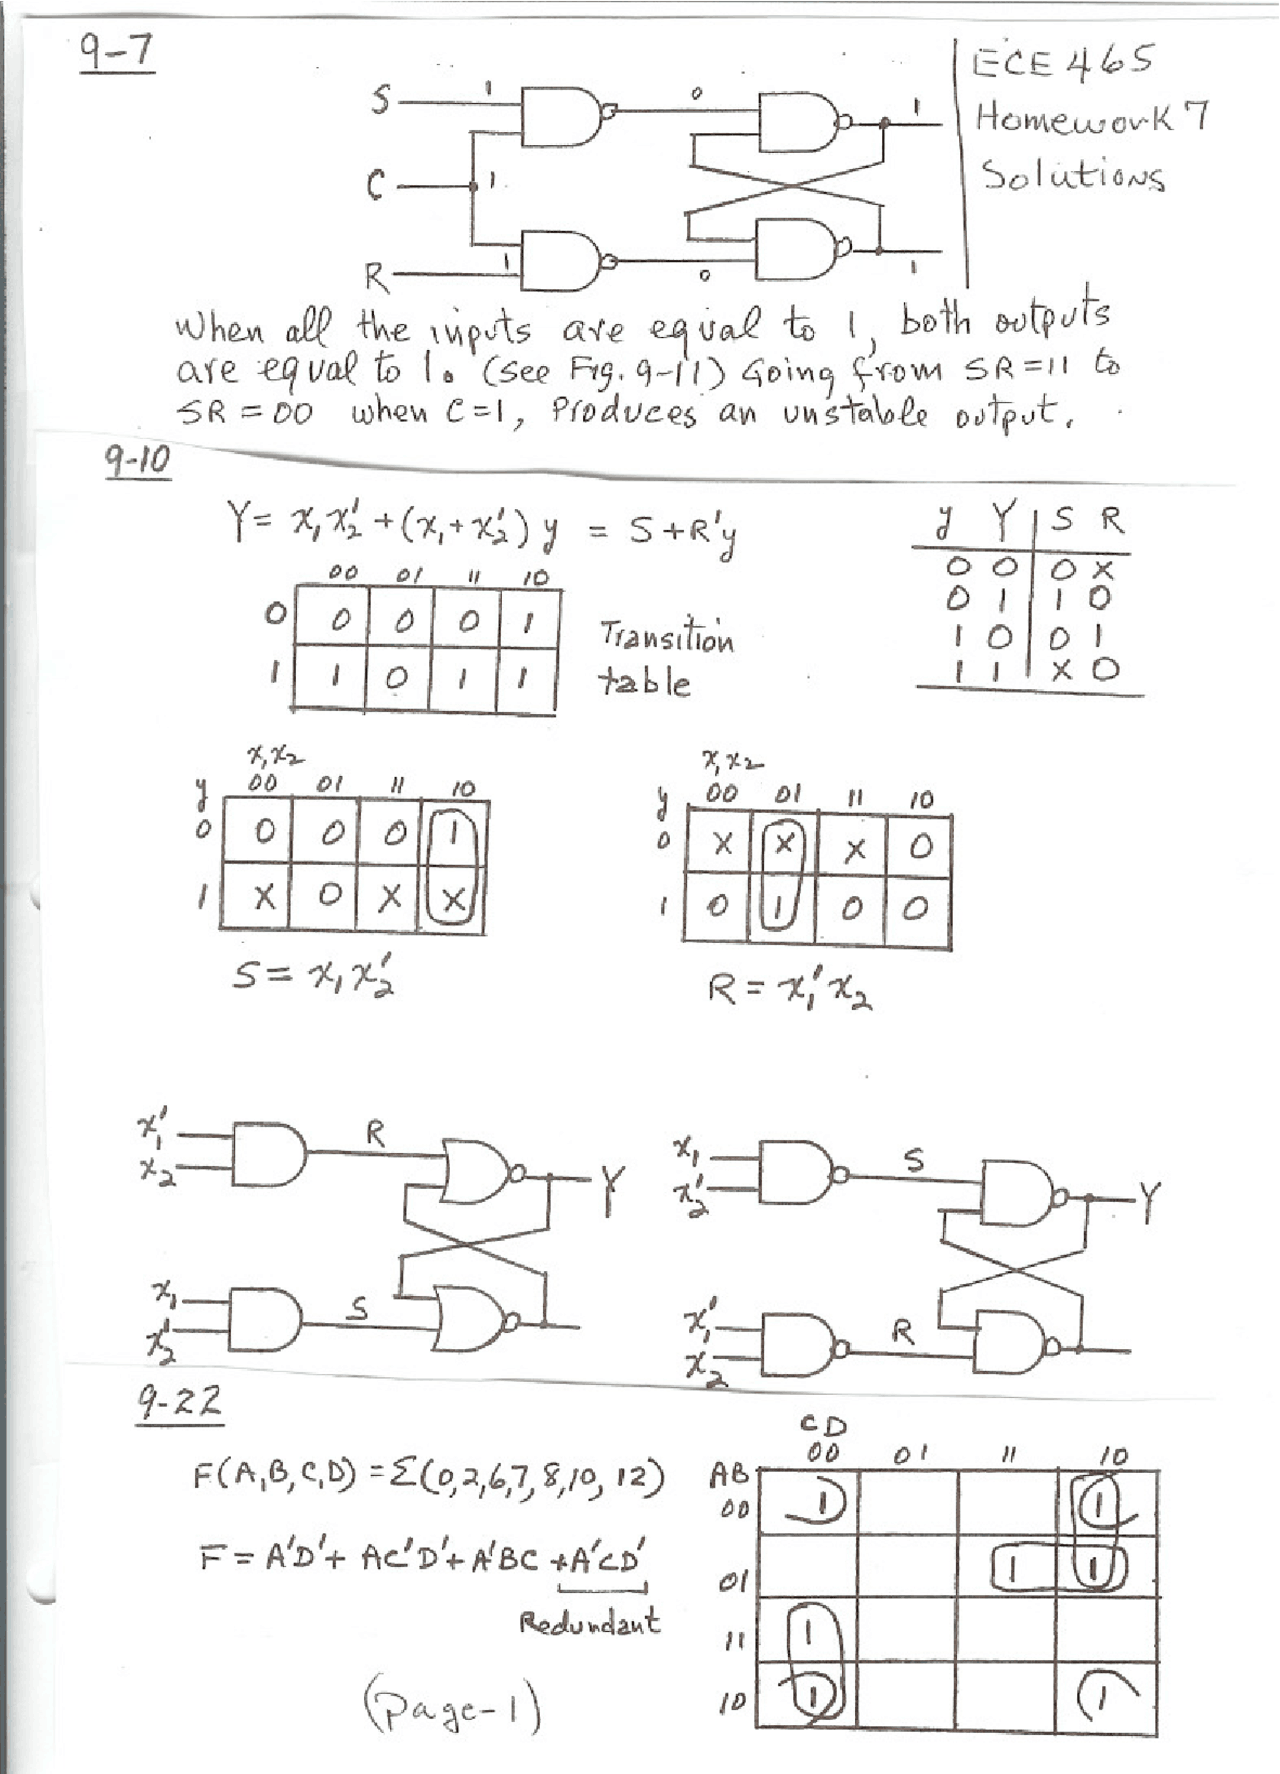 9-7
ECE 465
Homework 7
Solutions
S 1 0 1
C 1
R 1 0 1
When all the inputs are equal to 1, both outputs
are equal to 1. (See Fig. 9-11) Going from SR=11 to
SR=00 when C=1, produces an unstable output.
9-10
Y= x₁x₂' + (x₁+x₂')y = S+R'y
00 01 11 10
0 0 0 0 1
1 1 0 1 1
Transition
table
y Y S R
0 0 0 X
0 1 1 0
1 0 0 1
1 1 X 0
x₁x₂
y 00 01 11 10
0 0 0 0 1
1 X 0 X X
S= x₁x₂'
x₁x₂
y 00 01 11 10
0 X X X 0
1 0 1 0 0
R= x₁'x₂
x₁' R
x₂ Y
x₁ S
x₂'
x₁ S
x₂' Y
x₁' R
x₂
9-22
F(A,B,C,D) = Σ(0,2,6,7,8,10,12)
F= A'D'+ AC'D'+ A'BC +A'CD'
Redundant
CD
AB 00 01 11 10
00 1 1
01 1 1
11 1
10 1 1
(Page-1)